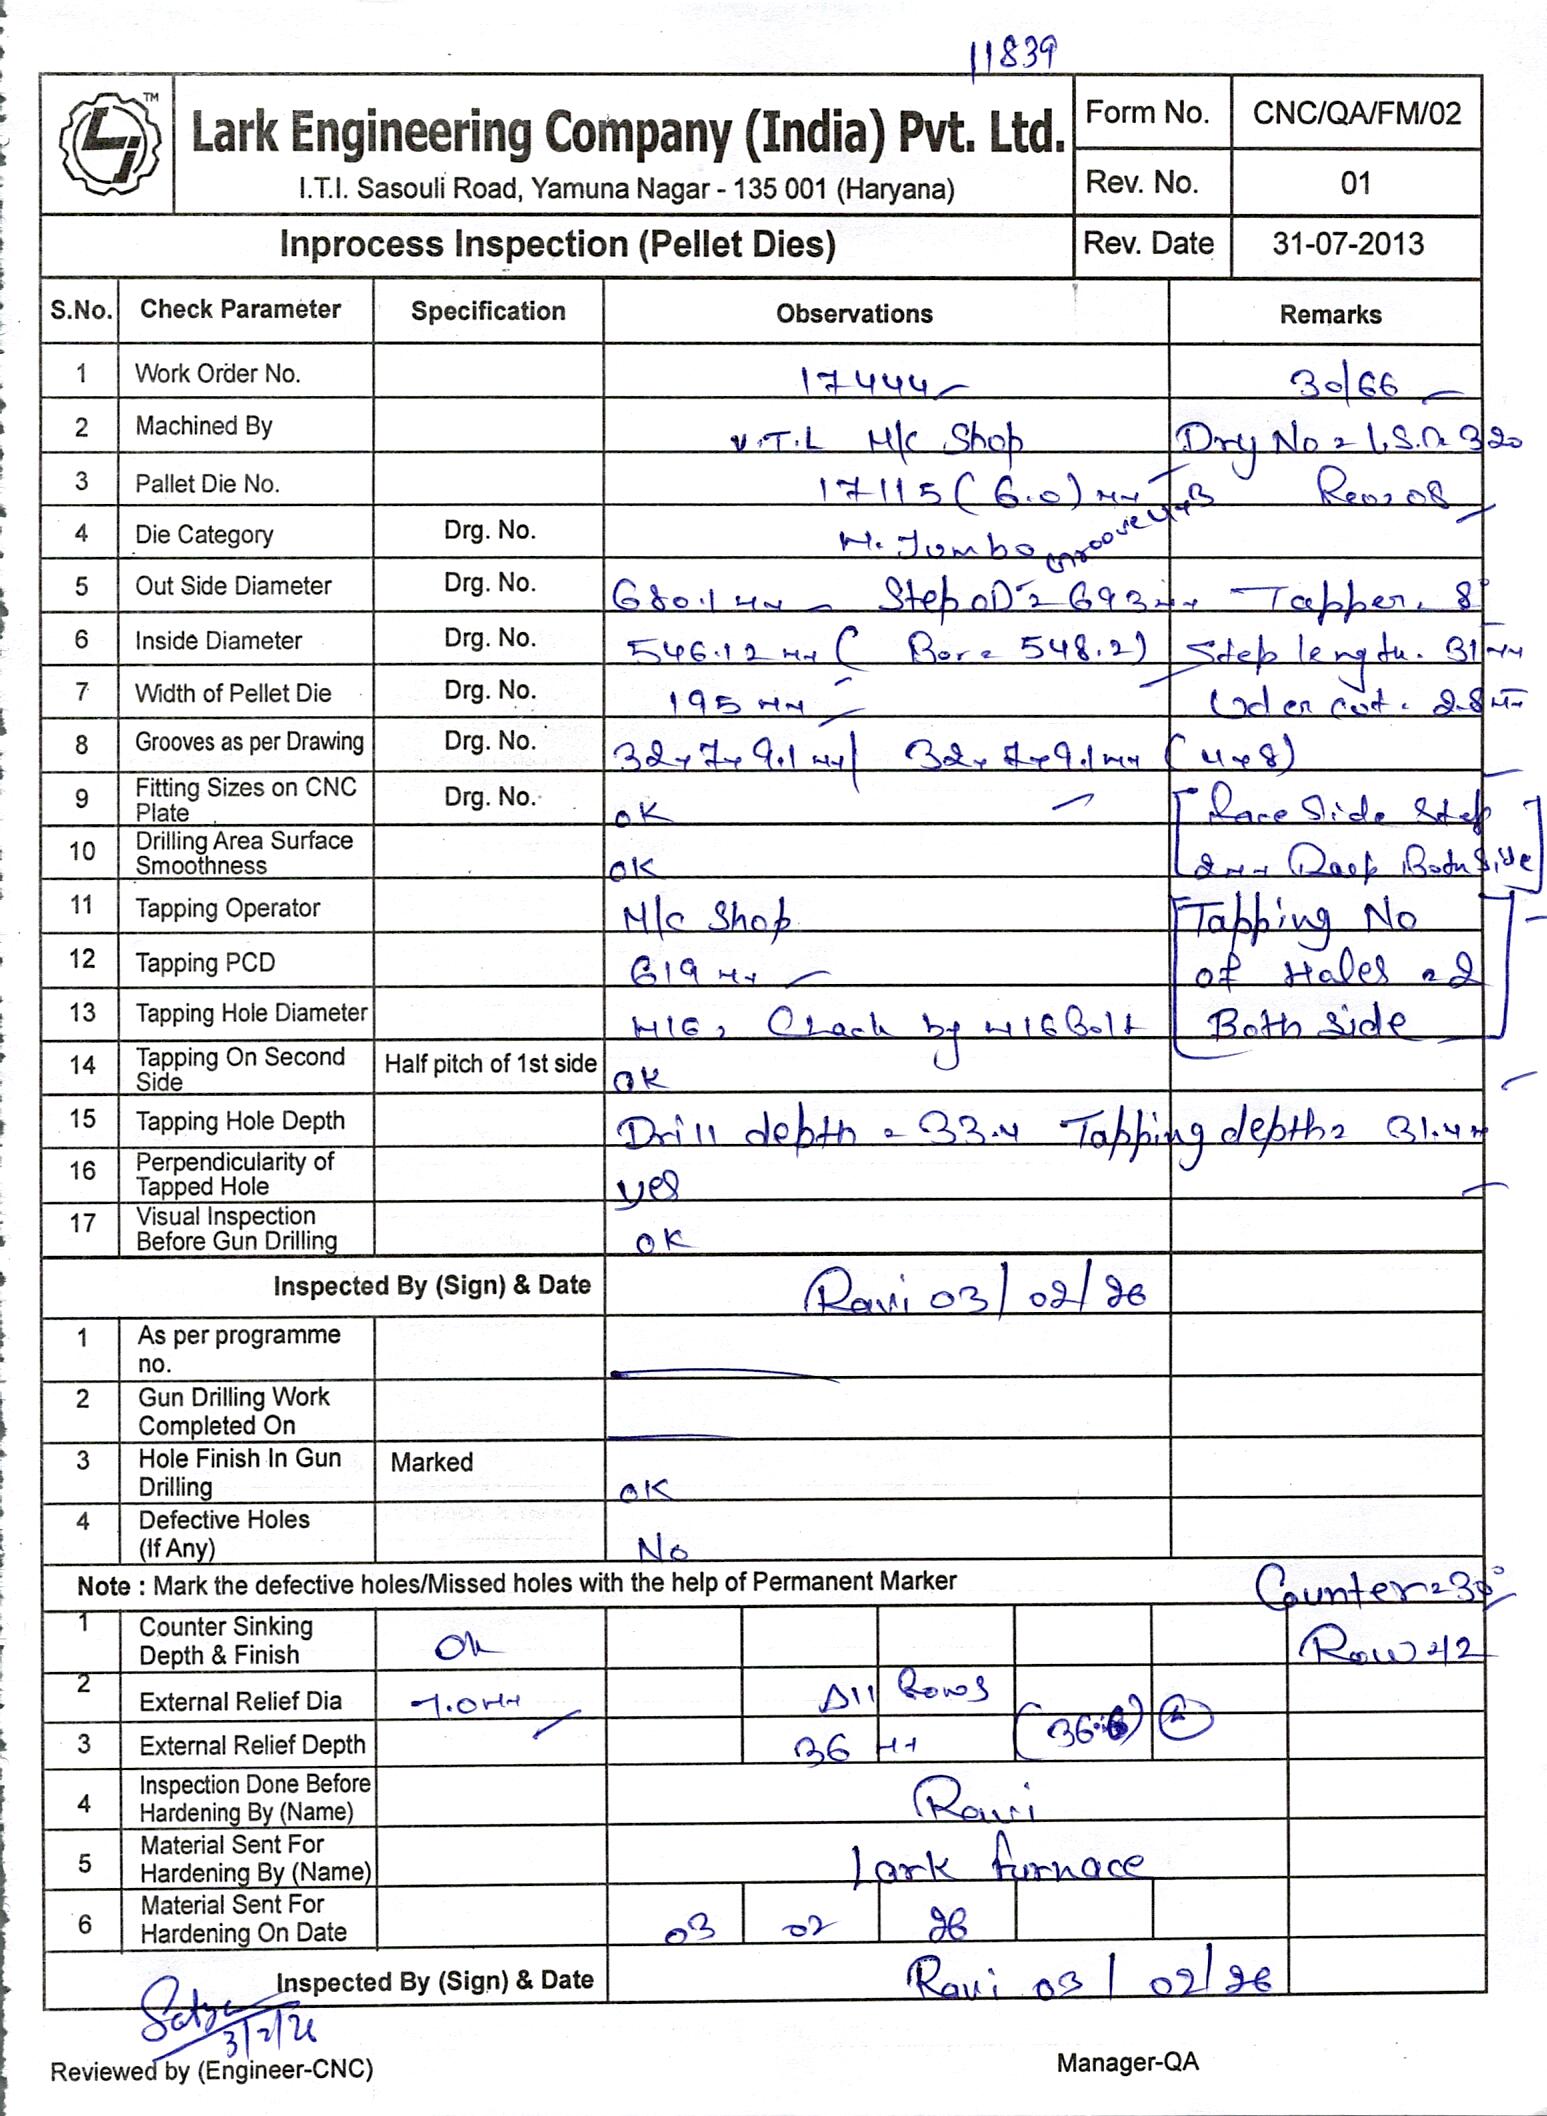 11839
LJ TM
Lark Engineering Company (India) Pvt. Ltd.
I.T.I. Sasouli Road, Yamuna Nagar - 135 001 (Haryana)
Form No. CNC/QA/FM/02
Rev. No. 01
Inprocess Inspection (Pellet Dies) Rev. Date 31-07-2013
S.No. Check Parameter Specification Observations Remarks
1 Work Order No. 17444 30/66
2 Machined By V.T.L M/C Shop
3 Pallet Die No. 17115 (6.0) mm
4 Die Category Drg. No. Jumbo Groove
5 Out Side Diameter Drg. No. 680.1 mm Step OD = 693 mm Tapper. 8°
6 Inside Diameter Drg. No. 546.12 mm (Bore 548.2) Step length. 31 mm
7 Width of Pellet Die Drg. No. 195 mm
8 Grooves as per Drawing Drg. No. 32x7x9.1 mm / 32x7x9.1 mm (4x8)
9 Fitting Sizes on CNC Plate Drg. No. OK Side Step
10 Drilling Area Surface Smoothness OK 2mm Both Side
11 Tapping Operator M/C Shop Tapping No
12 Tapping PCD 619 mm of Holes = 2
13 Tapping Hole Diameter M16, by M16 Bolt Both side
14 Tapping On Second Side Half pitch of 1st side OK
15 Tapping Hole Depth Drill depth = Tapping depth =
16 Perpendicularity of Tapped Hole yes
17 Visual Inspection Before Gun Drilling OK
Inspected By (Sign) & Date Ravi 03/02/26
1 As per programme no.
2 Gun Drilling Work Completed On
3 Hole Finish In Gun Drilling Marked OK
4 Defective Holes (If Any) No
Note : Mark the defective holes/Missed holes with the help of Permanent Marker Counter = 30°
1 Counter Sinking Depth & Finish Ok Row
2 External Relief Dia 7.0 mm All Rows
3 External Relief Depth 36 mm
4 Inspection Done Before Hardening By (Name) Ravi
5 Material Sent For Hardening By (Name) Lark furnace
6 Material Sent For Hardening On Date 03 02 26
Inspected By (Sign) & Date Ravi 03/02/26
3/2/26
Reviewed by (Engineer-CNC) Manager-QA